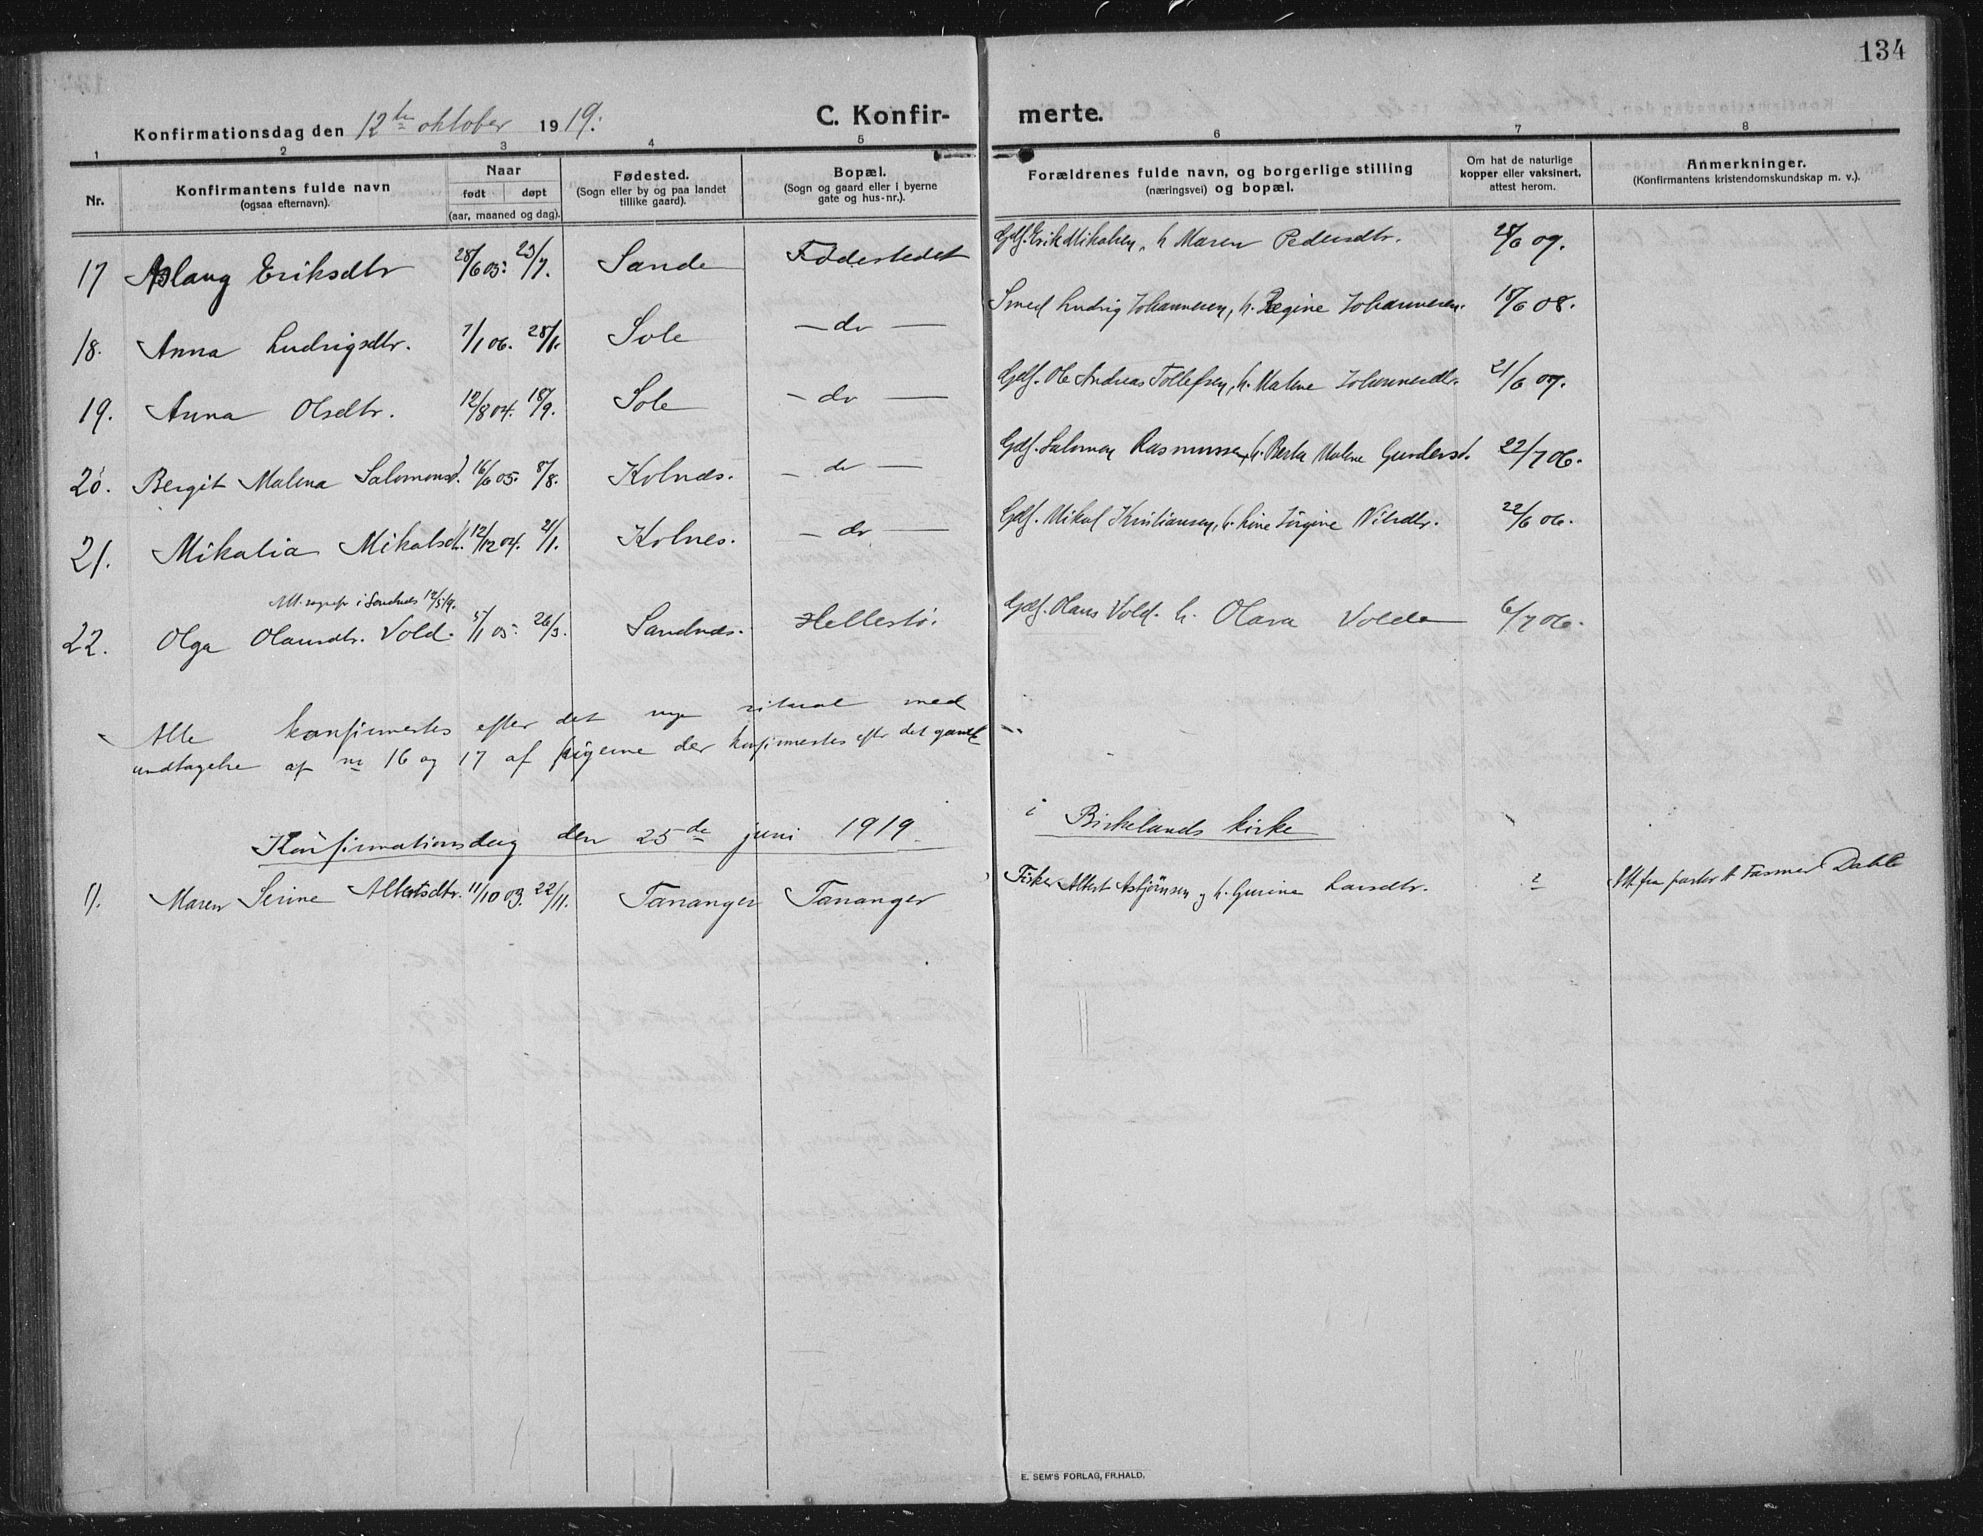 134
Konfirmationsdag den 12te oktober 1919. C. Konfir- merte.
1 2 3 4 5 6 7 8
Nr. Konfirmantens fulde navn (ogsaa efternavn). Naar født døpt (aar, maaned og dag). Fødested. (Sogn eller by og paa landet tillike gaard). Bopæl. (Sogn og gaard eller i byerne gate og hus-nr.). Forældrenes fulde navn, og borgerlige stilling (næringsvei) og bopæl. Om hat de naturlige kopper eller vaksinert, attest herom. Anmerkninger. (Konfirmantens kristendomskundskap m. v.).
17 Aslaug Eriksdtr 28/6 05. 23/7. Sande Fødestedet Gdf. Erik Mikalsen, h. Maren Pedersdtr. 28/6 07.
18. Anna Ludvigsdtr. 7/1 06. 28/1. Sole — do — Smed Ludvig Johannesen, h. Regine Johannesen. 18/6 08.
19. Anna Olsdtr. 12/8 04. 18/9. Sole — do — Gdf. Ole Andreas Tollefsen, h. Malene Johannesdtr. 21/6 07.
20. Bergit Malena Salomonsd. 16/6 05. 8/8. Kolnes. — do — Gdf. Salomon Rasmussen, h. Berta Malene Gundersd. 22/7 06.
21. Mikalia Mikalsdt. 12/12 04. 21/1. Kolnes. — do — Gdf. Mikal Kristiansen, h. Line Jørgine Nilsdtr. 22/6 06.
i Sandnes 12/5 19.
22. Olga Olausdtr. Vold. 5/1 05. 26/3. Sandnes. Hellestø. Gdf. Olaus Vold. h. Olava Volde 6/7 06.
Alle konfirmertes efter det nye ritual med
undtagelse af nr 16 og 17 af pigerne der konfirmertes efter det gamle
Konfirmationsdag den 25de juni 1919. i Birkelands kirke
1). Maren Serine Albertsdtr. 11/10 03. 22/11. Tananger Tananger Fisker Albert Asbjørnsen og h. Gurine Larsdtr. ? Att. fra pastor A Fasmer Dahl
E. SEM'S FORLAG, FR.HALD.